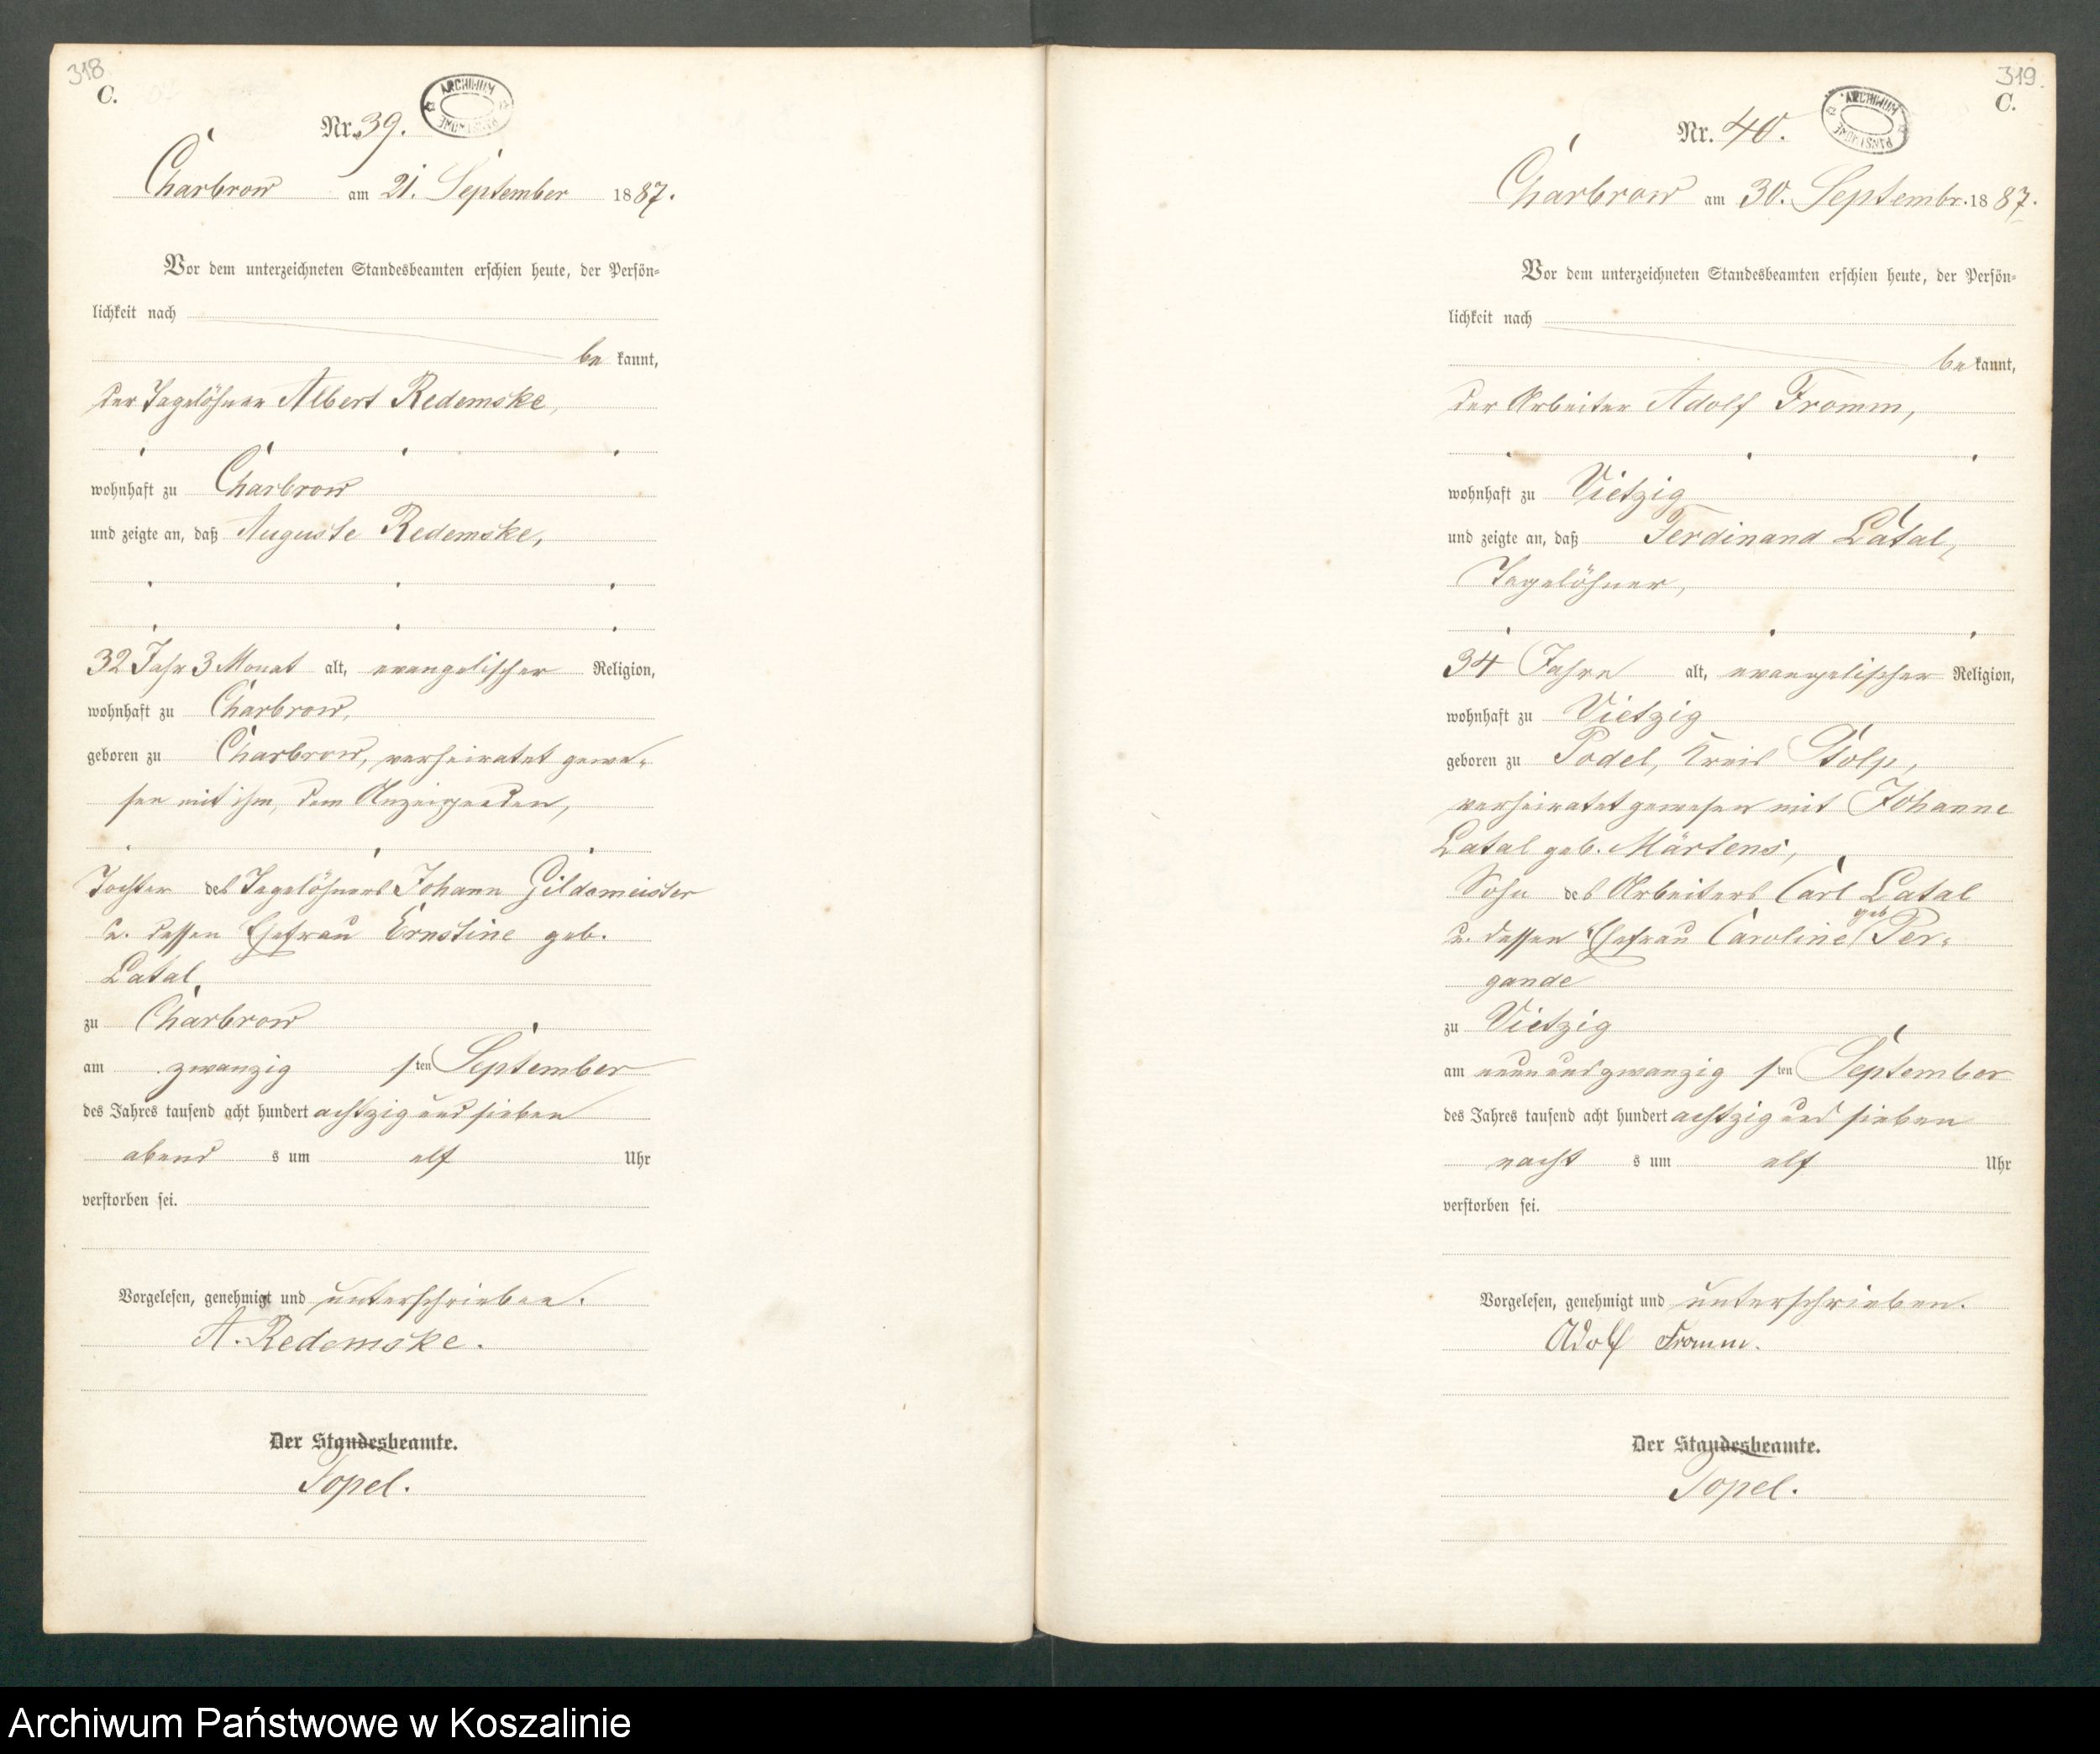 318
C.
ARCHIWUM PAŃSTWOWE
Nr. 39.
Charbrow am 21. September 1887.
Vor dem unterzeichneten Standesbeamten erschien heute, der Persön-
lichkeit nach
be kannt,
der Tagelöhner Albert Redemske,
wohnhaft zu Charbrow
und zeigte an, daß Auguste Redemske,
32 Jahr 3 Monat alt, evangelischer Religion,
wohnhaft zu Charbrow,
geboren zu Charbrow, verheiratet gewe-
sen mit ihm, dem Anzeigenden,
Tochter des Tagelöhners Johann Gildemeister
u. dessen Ehefrau Ernstine geb.
Latal,
zu Charbrow
am zwanzig sten September
des Jahres tausend acht hundert achtzig und sieben
abend s um elf Uhr
verstorben sei.
Vorgelesen, genehmigt und unterschrieben.
A. Redemske.
Der Standesbeamte.
Topel.
319.
C.
ARCHIWUM PAŃSTWOWE
Nr. 40.
Charbrow am 30. Septembr. 1887.
Vor dem unterzeichneten Standesbeamten erschien heute, der Persön-
lichkeit nach
be kannt,
der Arbeiter Adolf Fromm,
wohnhaft zu Vietzig
und zeigte an, daß Ferdinand Latal,
Tagelöhner,
34 Jahre alt, evangelischer Religion,
wohnhaft zu Vietzig
geboren zu Podel, Kreis Stolp,
verheiratet gewesen mit Johanne
Latal geb. Märtens,
Sohn des Arbeiters Carl Latal
u. dessen Ehefrau Caroline geb Per-
gande
zu Vietzig
am neunundzwanzig sten September
des Jahres tausend acht hundert achtzig und sieben
nacht s um elf Uhr
verstorben sei.
Vorgelesen, genehmigt und unterschrieben.
Adolf Fromm.
Der Standesbeamte.
Topel.
Archiwum Państwowe w Koszalinie